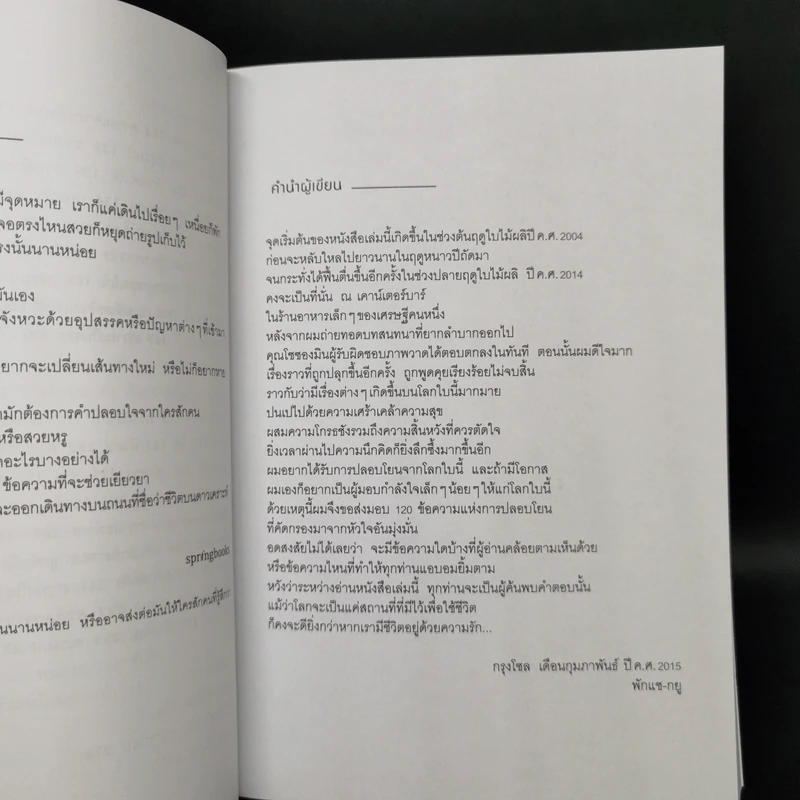 มีจุดหมาย เราก็แค่เดินไปเรื่อยๆ เหนื่อยก็พัก
เจอตรงไหนสวยก็หยุดถ่ายรูปเก็บไว้
ตรงนั้นนานหน่อย
มันเอง
จังหวะด้วยอุปสรรคหรือปัญหาต่างๆที่เข้ามา
อยากจะเปลี่ยนเส้นทางใหม่ หรือไม่ก็อยากหาย
มักต้องการคำปลอบใจจากใครสักคน
หรือสวยหรู
อะไรบางอย่างได้
ข้อความที่จะช่วยเยียวยา
ออกเดินทางบนถนนที่ชื่อว่าชีวิตบนดาวเคราะห์
springbooks
นานหน่อย หรืออาจส่งต่อมันให้ใครสักคนที่รู้สึก
คำนำผู้เขียน
จุดเริ่มต้นของหนังสือเล่มนี้เกิดขึ้นในช่วงต้นฤดูใบไม้ผลิปี ค.ศ. 2004
ก่อนจะหลับใหลไปยาวนานในฤดูหนาวปีถัดมา
จนกระทั่งได้ฟื้นตื่นขึ้นอีกครั้งในช่วงปลายฤดูใบไม้ผลิ ปี ค.ศ. 2014
คงจะเป็นที่นั่น ณ เคาน์เตอร์บาร์
ในร้านอาหารเล็กๆของเศรษฐีคนหนึ่ง
หลังจากผมถ่ายทอดบทสนทนาที่ยากลำบากออกไป
คุณโซซองมินผู้รับผิดชอบภาพวาดได้ตอบตกลงในทันที ตอนนั้นผมดีใจมาก
เรื่องราวที่ถูกปลุกขึ้นอีกครั้ง ถูกพูดคุยเรียงร้อยไม่จบสิ้น
ราวกับว่ามีเรื่องต่างๆเกิดขึ้นบนโลกใบนี้มากมาย
ปนเปไปด้วยความเศร้าเคล้าความสุข
ผสมความโกรธชังรวมถึงความสิ้นหวังที่ควรตัดใจ
ยิ่งเวลาผ่านไปความนึกคิดก็ยิ่งลึกซึ้งมากขึ้นอีก
ผมอยากได้รับการปลอบโยนจากโลกใบนี้ และถ้ามีโอกาส
ผมเองก็อยากเป็นผู้มอบกำลังใจเล็กๆน้อยๆให้แก่โลกใบนี้
ด้วยเหตุนี้ผมจึงขอส่งมอบ 120 ข้อความแห่งการปลอบโยน
ที่คัดกรองมาจากหัวใจอันมุ่งมั่น
อดสงสัยไม่ได้เลยว่า จะมีข้อความใดบ้างที่ผู้อ่านคล้อยตามเห็นด้วย
หรือข้อความไหนที่ทำให้ทุกท่านแอบอมยิ้มตาม
หวังว่าระหว่างอ่านหนังสือเล่มนี้ ทุกท่านจะเป็นผู้ค้นพบคำตอบนั้น
แม้ว่าโลกจะเป็นแค่สถานที่ที่มีไว้เพื่อใช้ชีวิต
ก็คงจะดียิ่งกว่าหากเรามีชีวิตอยู่ด้วยความรัก...
กรุงโซล เดือนกุมภาพันธ์ ปี ค.ศ. 2015
พักแช-กยู